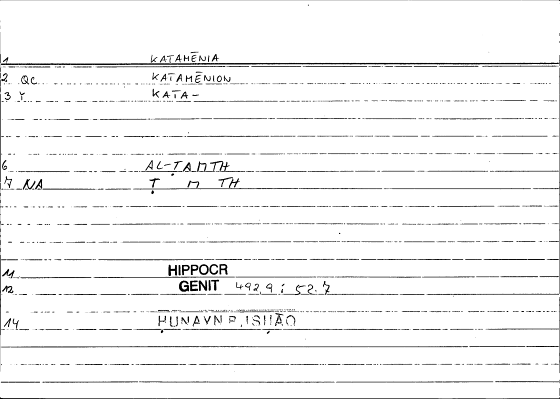 1 KATAMĒNIA
2 QC KATAMĒNION
3 Y KATA-
6 AL-ṬAMTH
7 NA Ṭ M TH
11 HIPPOCR
12 GENIT 492.9 ; 52.7
14 ḤUNAYN B. ISḤĀQ